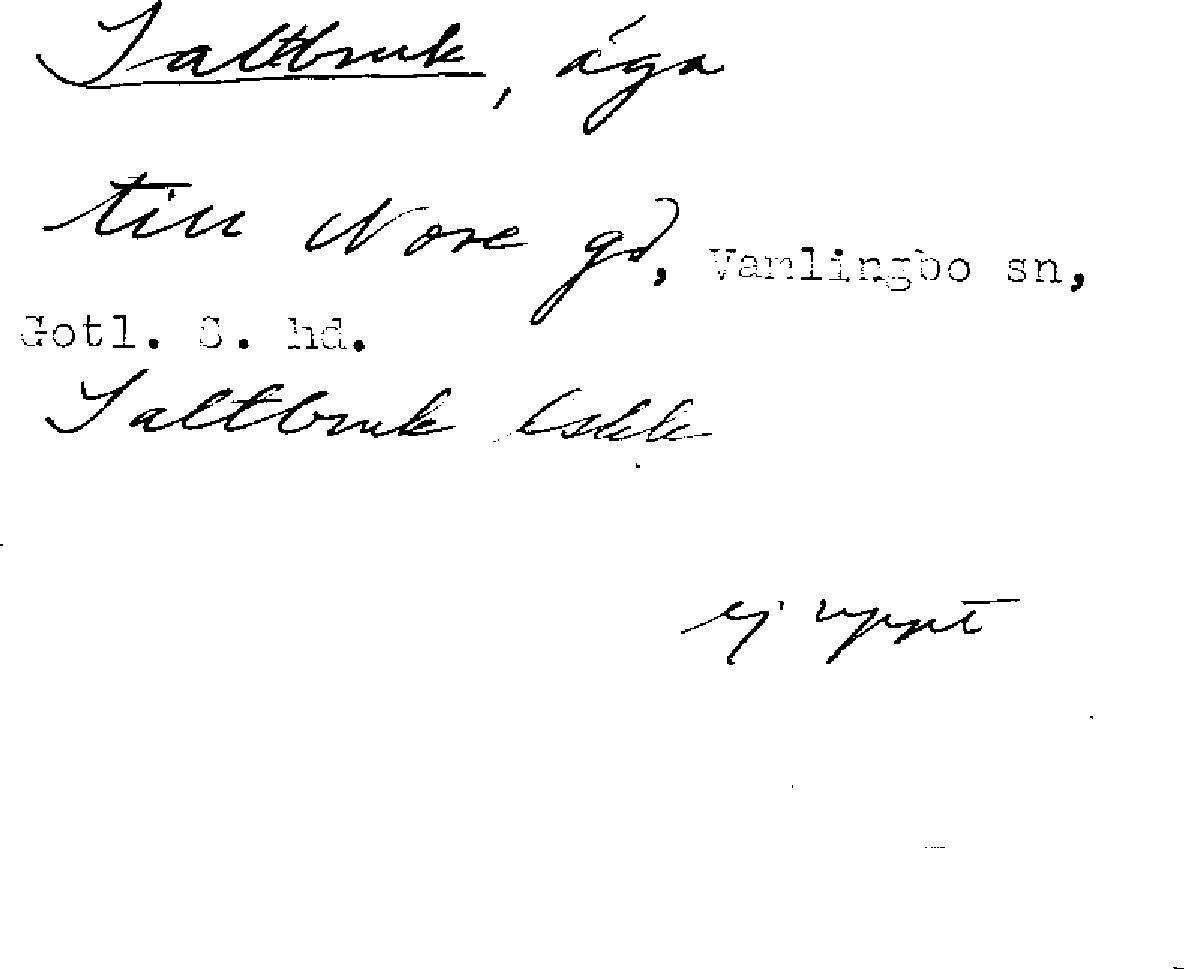 Saltbruk, äga
till Nore gd, Vamlingbo sn,
Gotl. S. hd.
Saltbruk
ej uppt